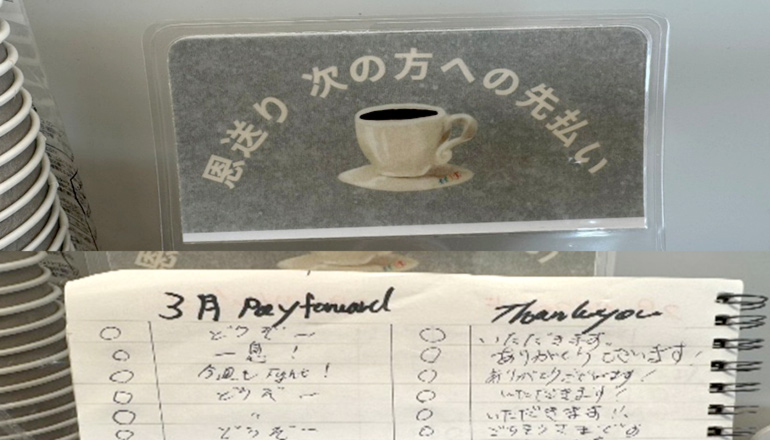 恩送り 次の方への先払い
3月 Pay forward Thank you
どうぞー いただきます。
一息! ありがとうございます!
今週も Fight! ありがとうございます!
どうぞー いただきます!
〃 いただきます!!
どうぞー